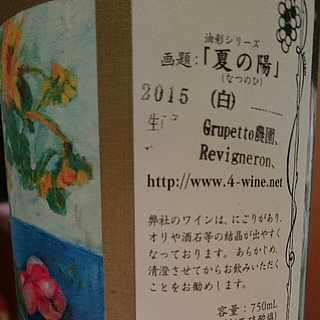 油彩シリーズ
画題:「夏の陽」
(なつのひ)
2015 (白)
生
Grupetto農園、
Revigneron、
http://www.4-wine.net
弊社のワインは、にごりがあり、
オリや酒石等の結晶が出やすく
なっております。あらかじめ、
清澄させてからお飲みいただく
ことをお勧めします。
容量:750mL